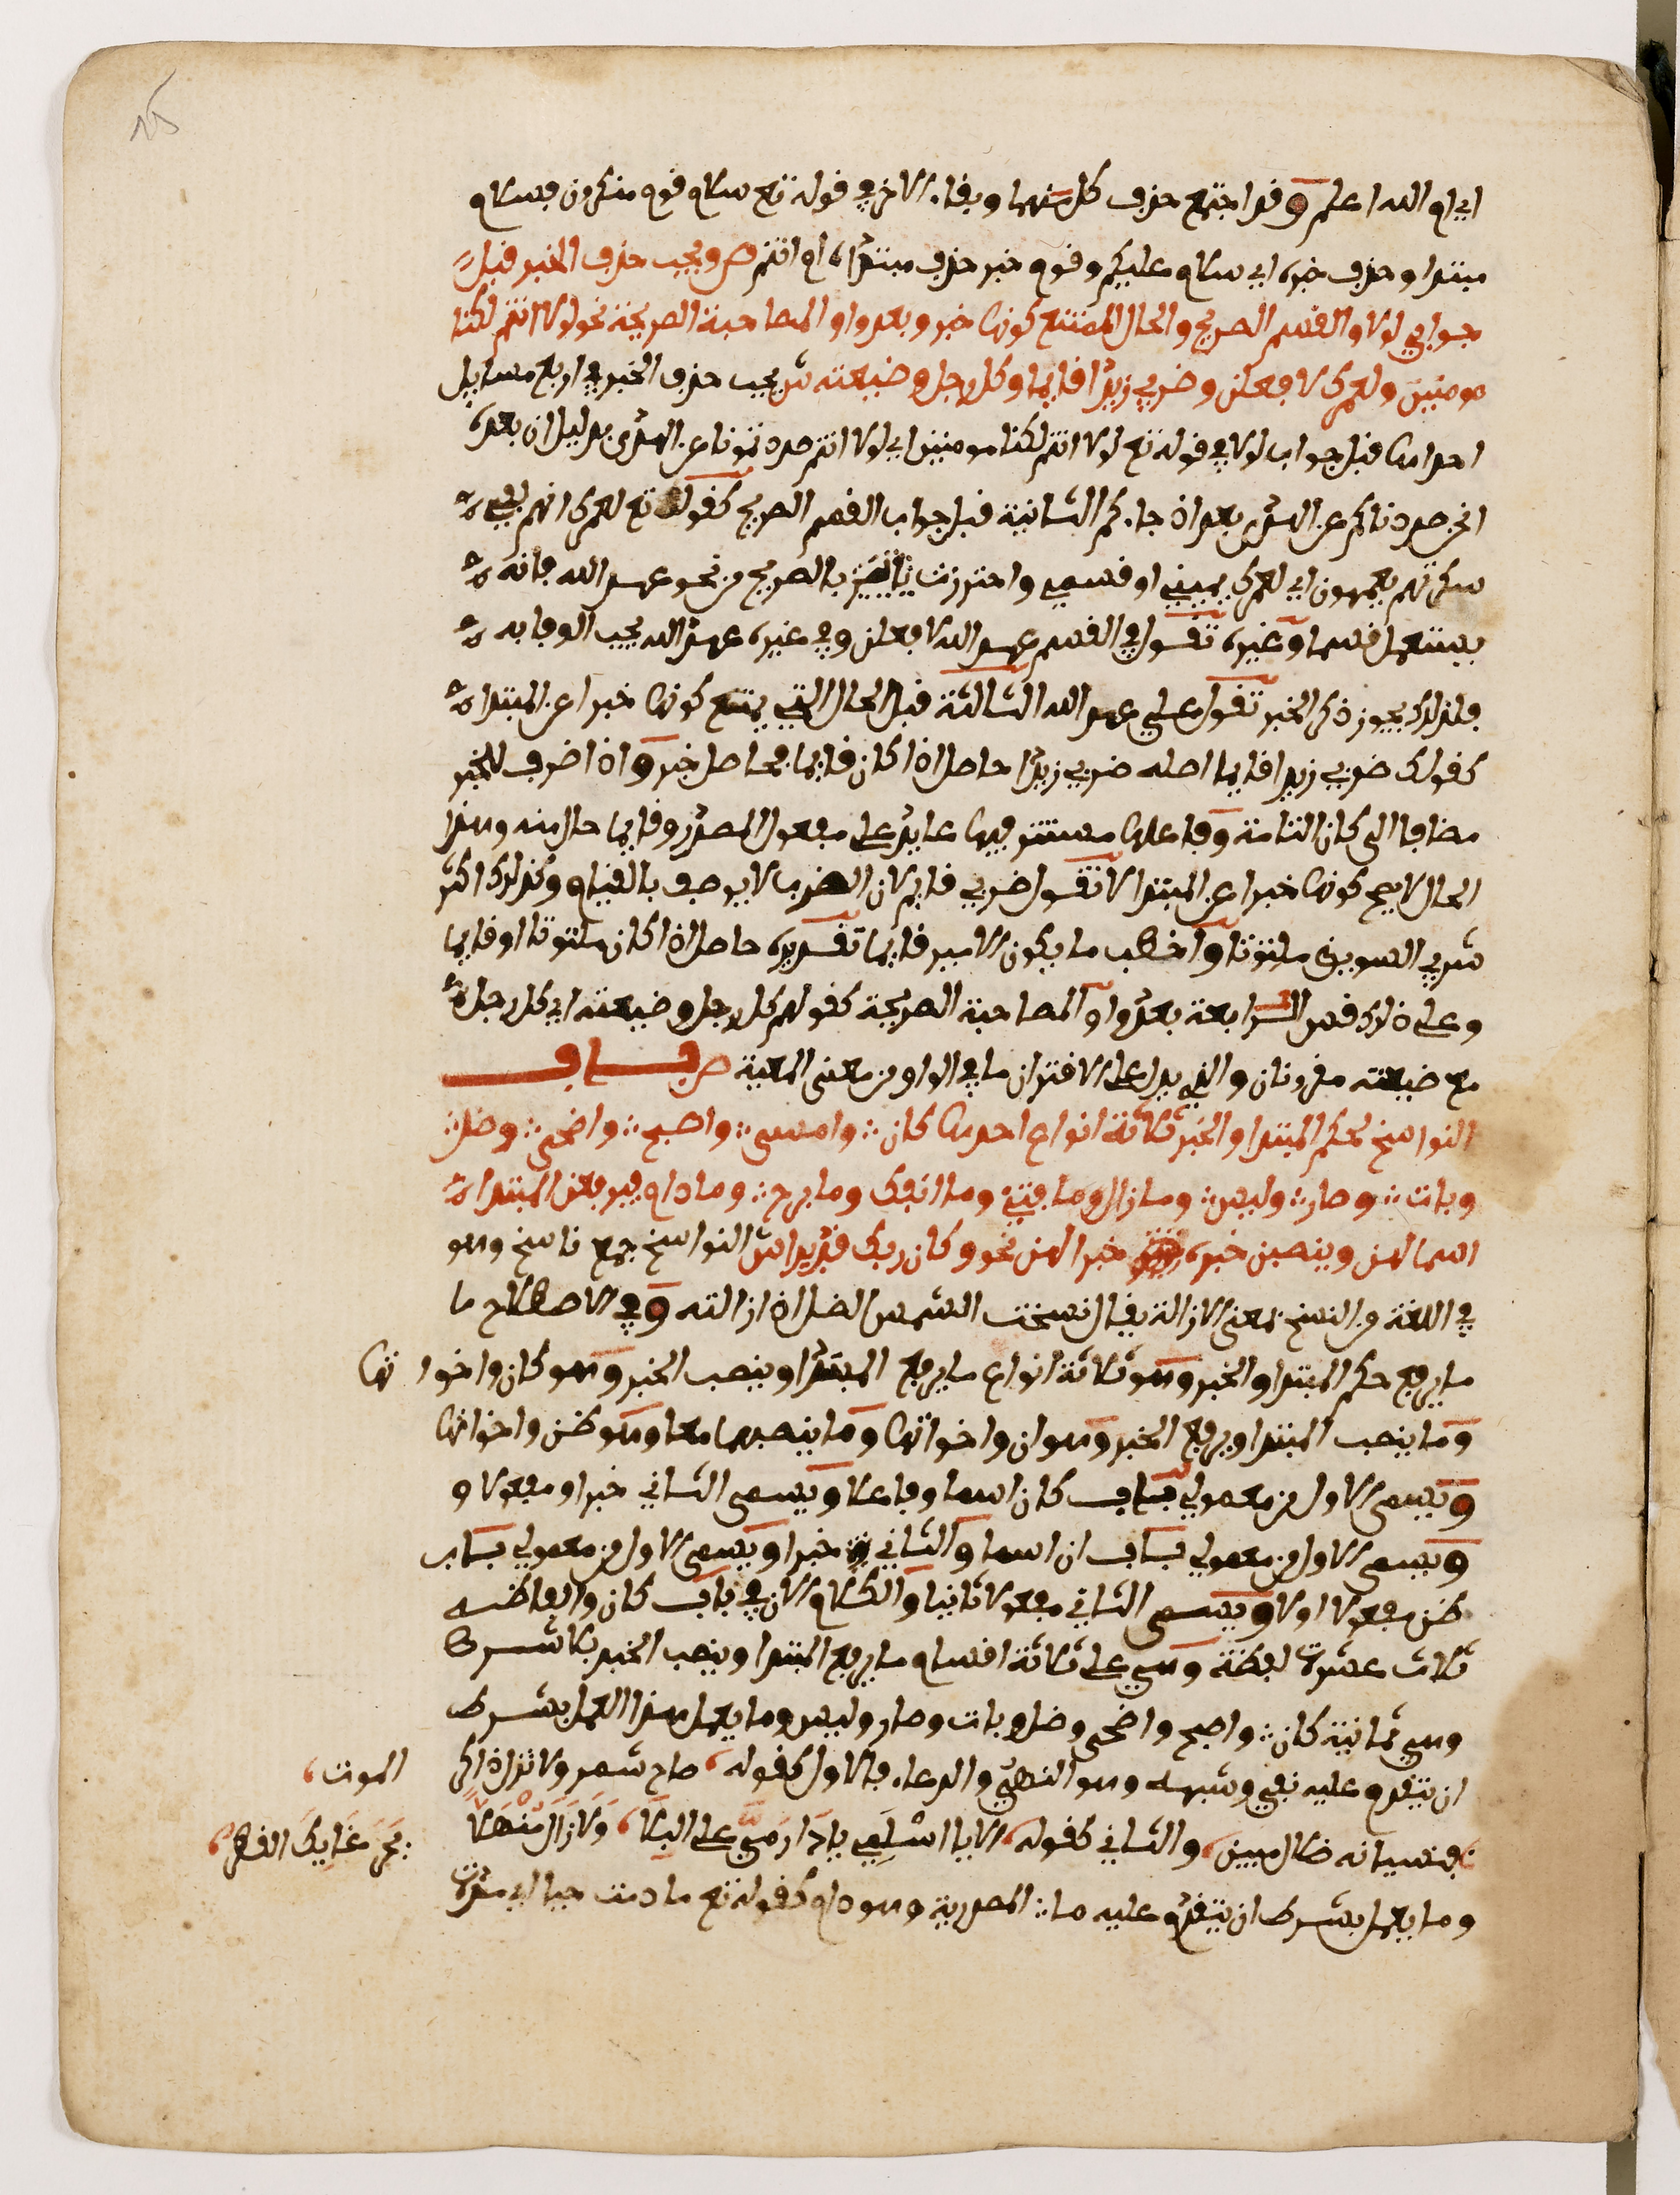 اي ام الله اعلم وقد اجتمع حذف كل منهما وبقاء الاخر في قوله تع سلام قوم منكرون فسلام
مبتدا وحذف خبره اي سلام عليكم وقوم خبر حذف مبتداه اي انتم ص ويجب حذف الخبر قبل
جوابي لولا والقسم الصريح والحال الممتنع كونها خبر وبعد واو المصاحبة الصريحة نحو لولا انتم لكنا
مومنين ولعمرك لافعلن وضربي زيدا قايما وكل رجل وضيعته ش يجب حذف الخبر في اربع مسايل
احداها قبل جواب لولا في قوله تع لولا انتم لكنا مومنين اي لولا انتم صددتمونا عن الهدى بدليل ان بعده
انحن صددناكم عن الهدى بعد اذ جاءكم الثانية قبل جواب القسم الصريح كقوله تع لعمرك انهم لفي
سكرتهم يعمهون اي لعمرك يميني او قسمي واحترزت بالصريح من نحو عهد الله فانه
يستعمل قسما وغيره تقول في القسم عهد الله لافعلن وفي غيره عهد الله يجب الوفا به
فلذلك يجوز ذكر الخبر تقول علي عهد الله الثالثة قبل الحال التي يمتنع كونها خبرا عن المبتدا
كقولك ضربي زيدا قايما اصله ضربي زيدا حاصل اذا كان قايما فحاصل خبر واذا ظرف للخبر
مضاف الى كان التامة وفاعلها مستتر فيها عايد على مفعول المصدر وقايما حال منه وهذا
الحال لا يصح كونها خبرا عن المبتدا لا تقول ضربي قايم لان الضرب لا يوصف بالقيام وكذلك اكثر
شربي السويق ملتوتا واخطب ما يكون الامير قايما تقديره حاصل اذا كان ملتوتا او قايما
وعلى ذلك فقس الرابعة بعد واو المصاحبة الصريحة كقولهم كل رجل وضيعته اي كل رجل
مع ضيعته مقرونان والذي يدل على الاقتران ما في الواو من معنى المعية ص باب
النواسخ لحكم المبتدا والخبر ثلاثة انواع احدها كان وامسى واصبح واضحى وضل
وبات وصار وليس وما زال وما فتئ وما انفك وما برح وما دام فيرفعن المبتدا
اسما لهن وينصبن خبره خبرا لهن نحو وكان ربك قديرا ش النواسخ جمع ناسخ وهو
في اللغة من النسخ بمعنى الازالة يقال نسخت الشمس الضل اذا ازالته وفي الاصطلاح ما
ما يرفع حكم المبتدا والخبر وهو ثلاثة انواع ما يرفع المبتدا وينصب الخبر وهو كان واخواتها
وما ينصب المبتدا ويرفع الخبر وهو ان واخواتها وما ينصبهما معا وهو ظن واخواتها
ويسمى الاول من معمولي باب كان اسما وفاعلا ويسمى الثاني خبرا ومفعولا و
ويسمى الاول من معمولي باب ان اسما والثاني خبرا ويسمى الاول من معمولي باب
ظن مفعولا اولا ويسمى الثاني مفعولا ثانيا والكلام الان في باب كان والفاظه
ثلاث عشرة لفظة وهي على ثلاثة اقسام ما يرفع المبتدا وينصب الخبر بلا شرط
وهي ثمانية كان واصبح واضحى وضل وبات وصار وليس وما يعمل هذا العمل بشرط
ان يتقدم عليه نفي وشبهه وهو النهي والدعاء فالاول كقوله صاح شمر ولا تزل ذاكر الموت
فنسيانه ضلال مبين والثاني كقوله الا يا اسلمي يا دار مي على البلا ولا زال منهلا بجرعايك القطر
وما يعمل بشرط ان يتقدم عليه ما المصدرية وهو دام كقوله تع ما دمت حيا اي مدة